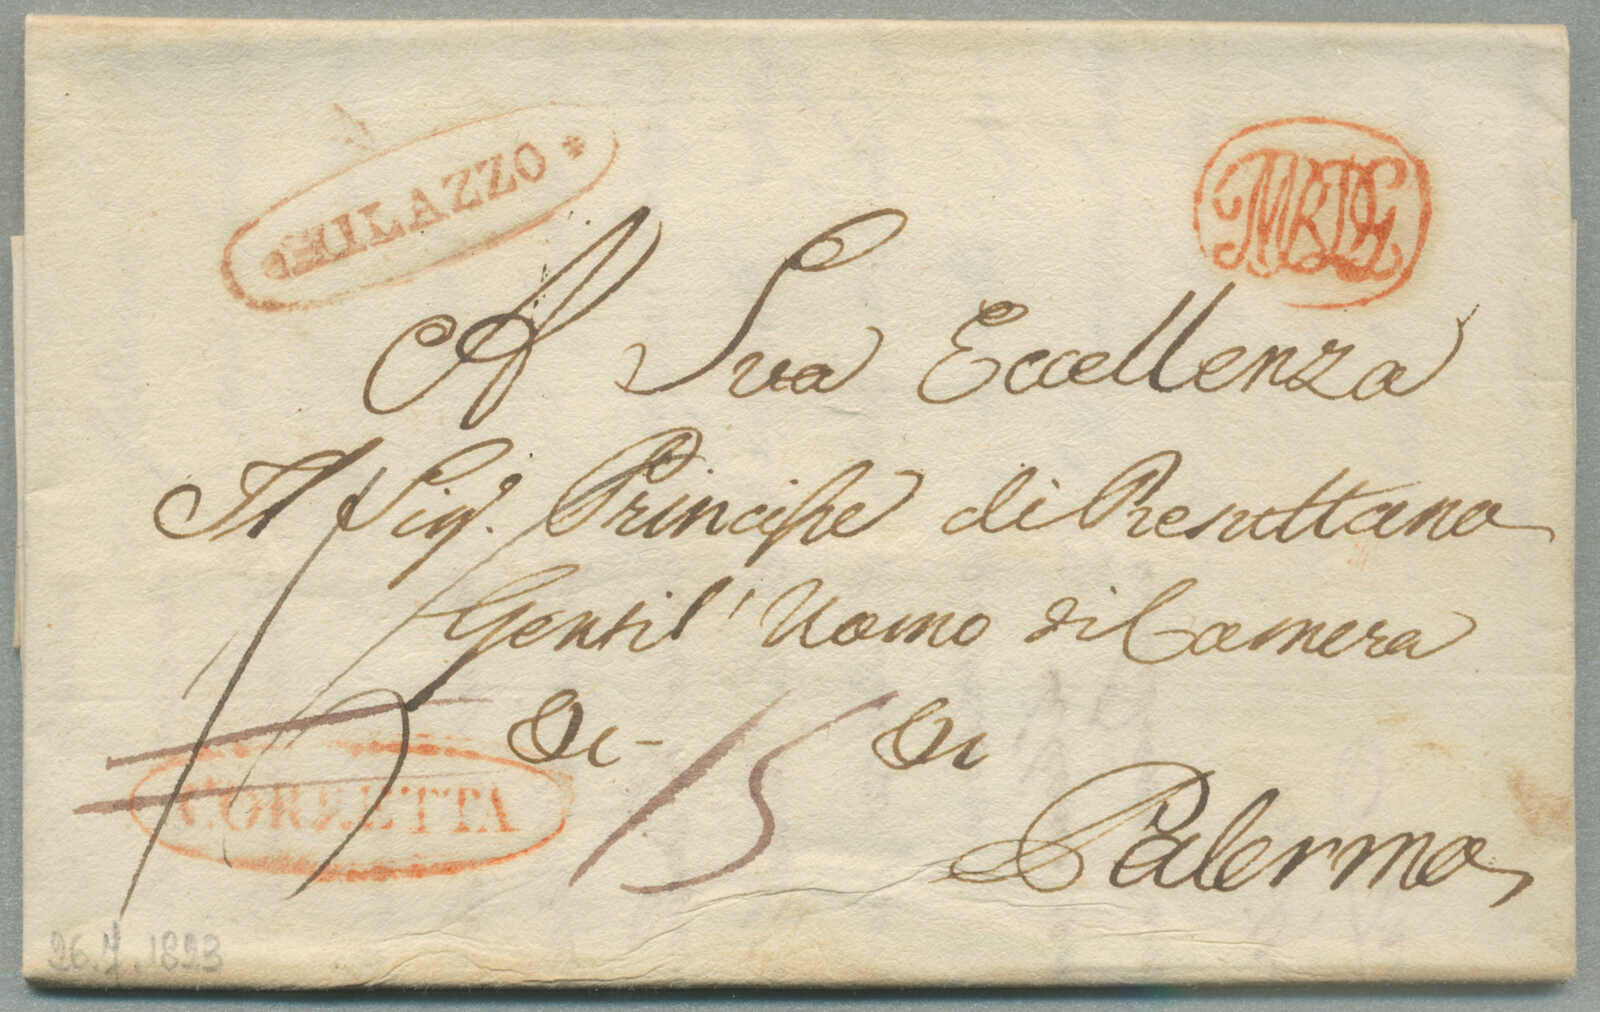 MILAZZO
A Sua Eccellenza
Il Sig.r Principe di Resuttano
Gentil' Uomo di Camera
Di - 15 Di
CORRETTA
Palermo
26.7.1823